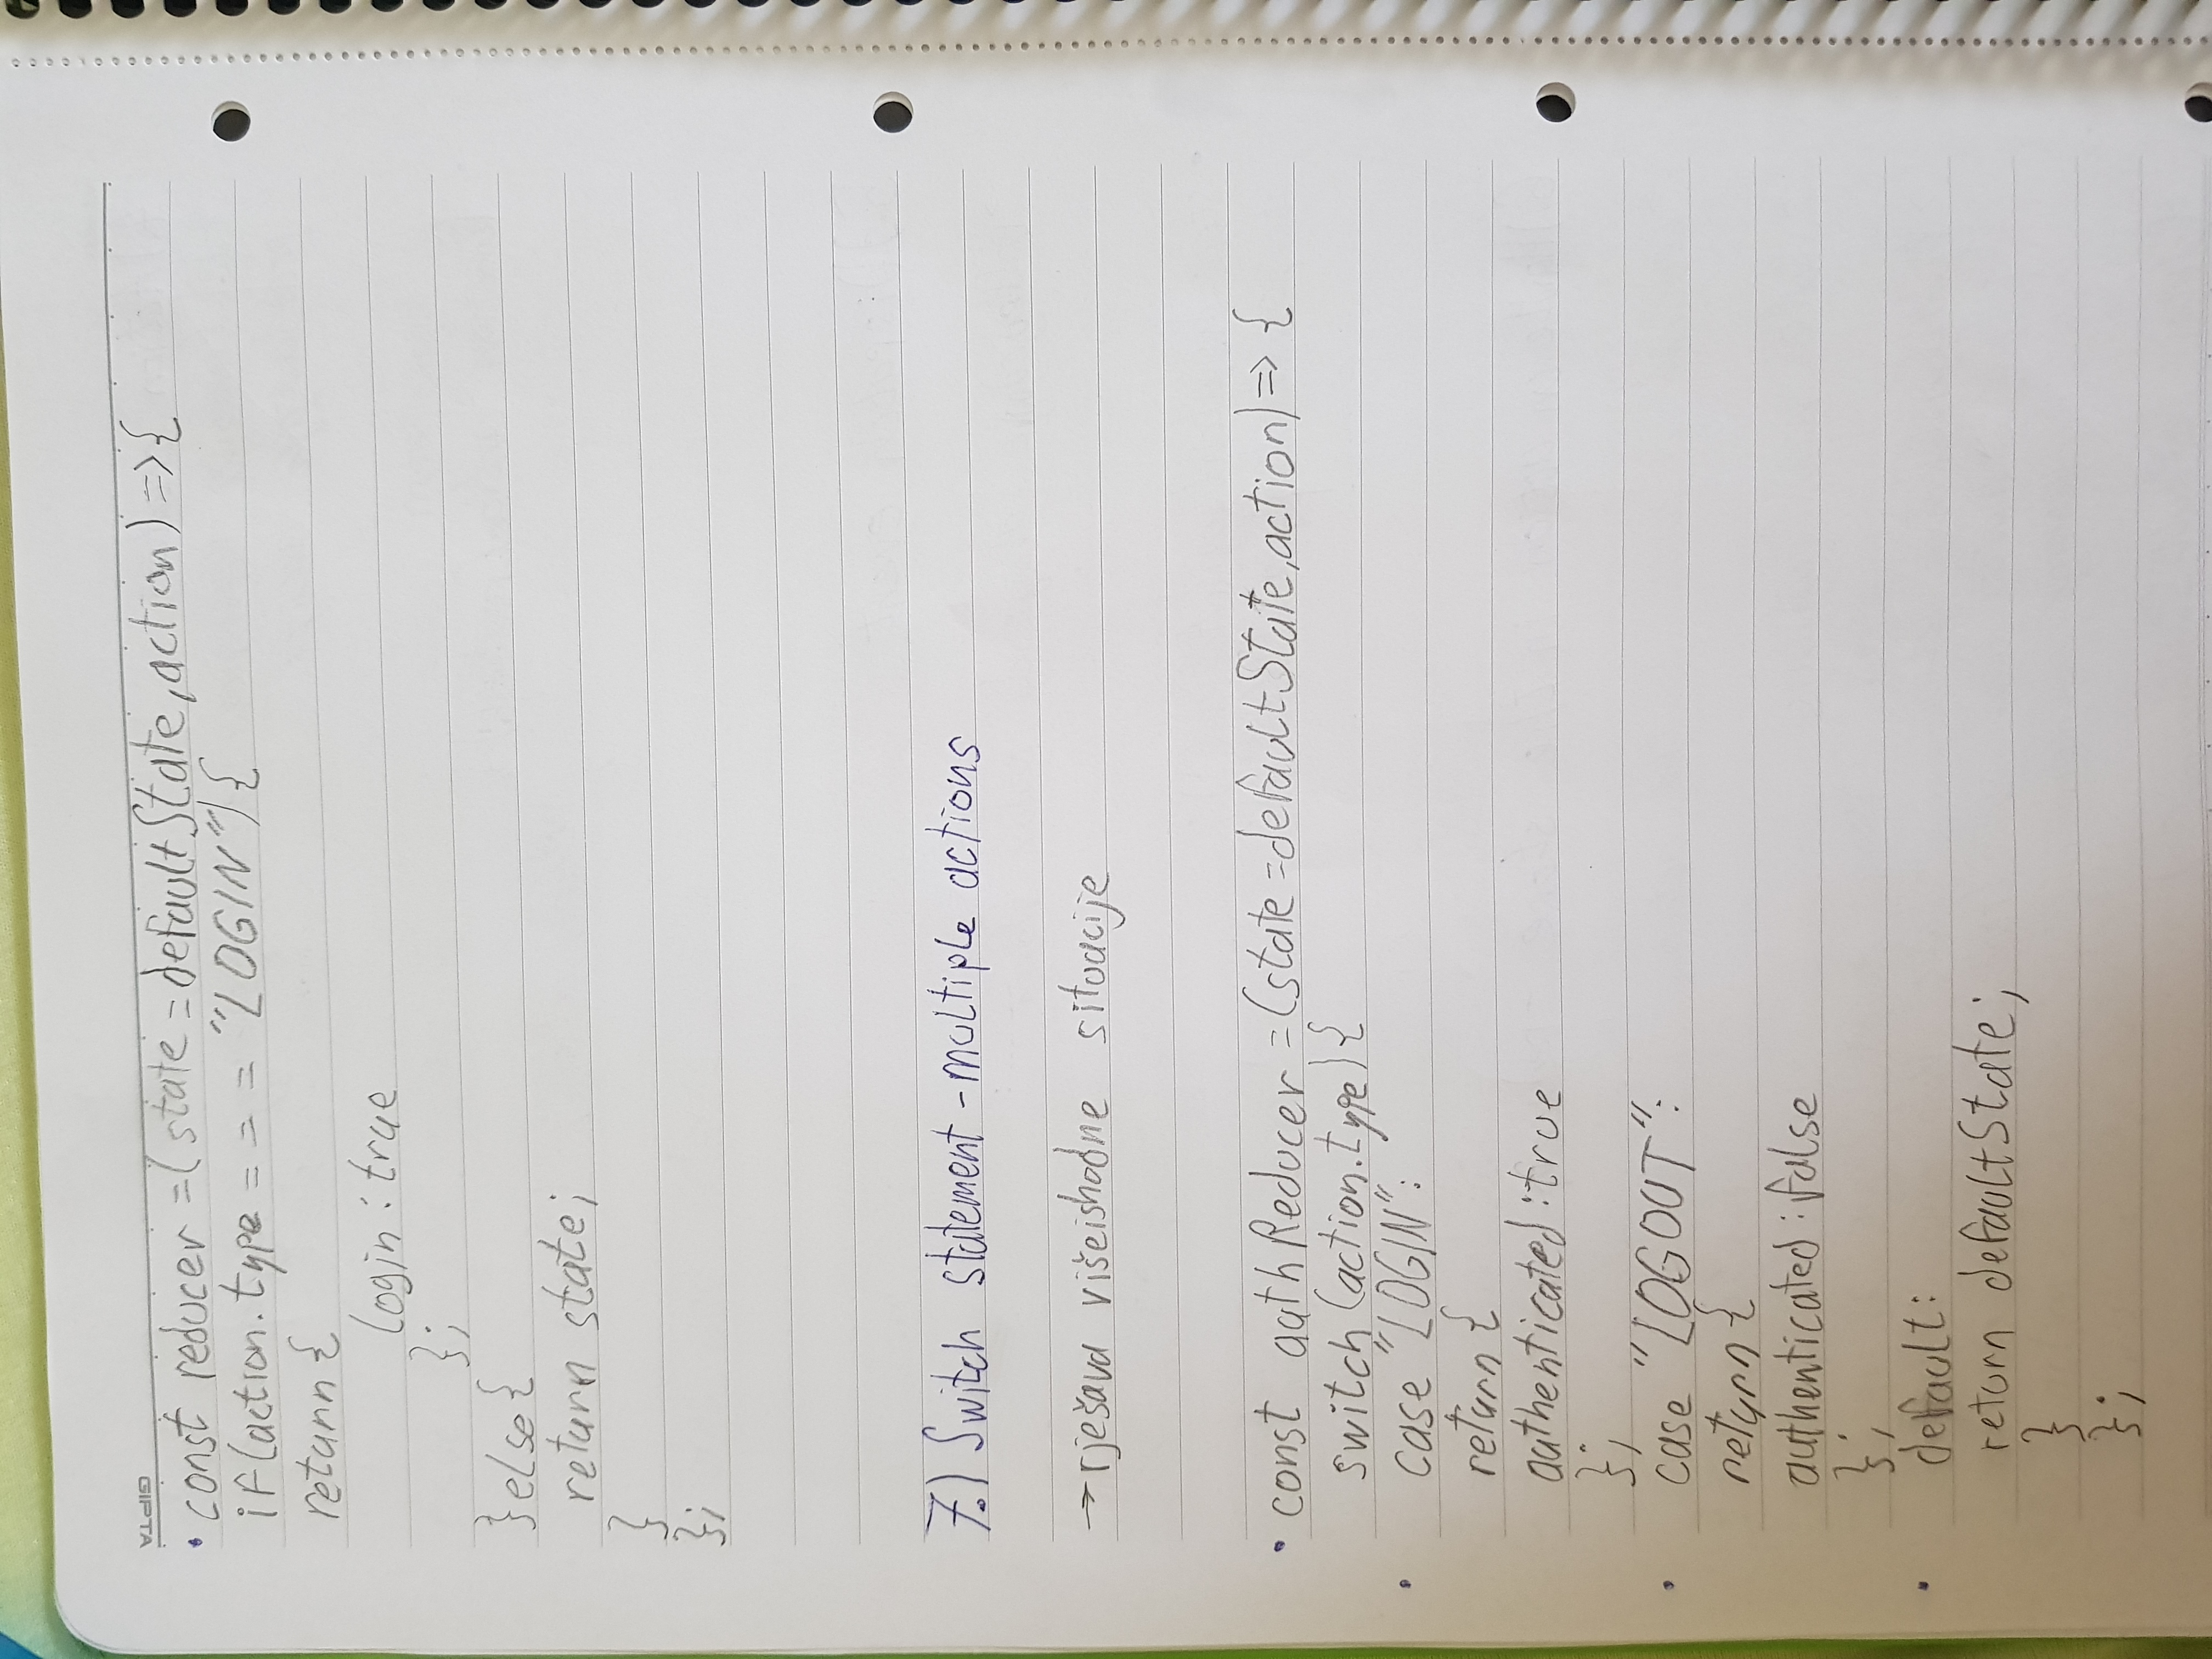 GIPTA
• const reducer =( state = defaultState, action) =>{
if(action.type = = = "LOGIN"){
return {
login : true
};
}else{
return state;
}
};
7.) Switch statement - multiple actions
→ rješava višeishodne situacije
• const authReducer =(state=defaultState,action)=> {
switch (action.type){
• case "LOGIN":
return {
authenticated :true
};
• case "LOGOUT":
return {
authenticated : false
};
• default:
return defaultState;
}
};